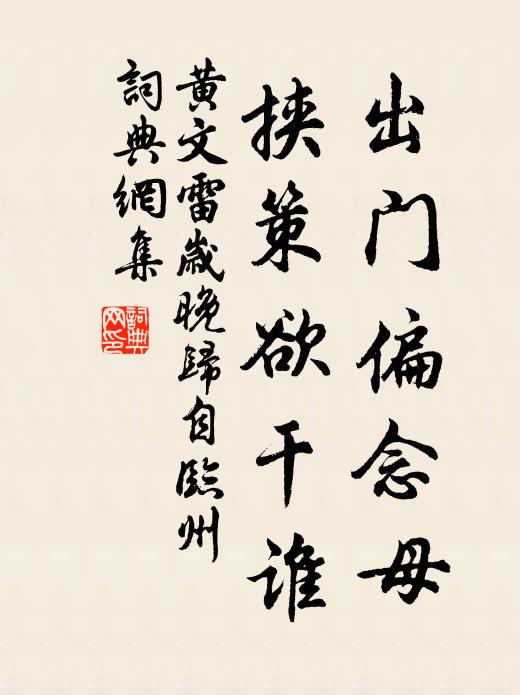 出门偏念母
挟策欲干谁
黄文雷歳晚歸自臨州
詞典網集
詞典
网印